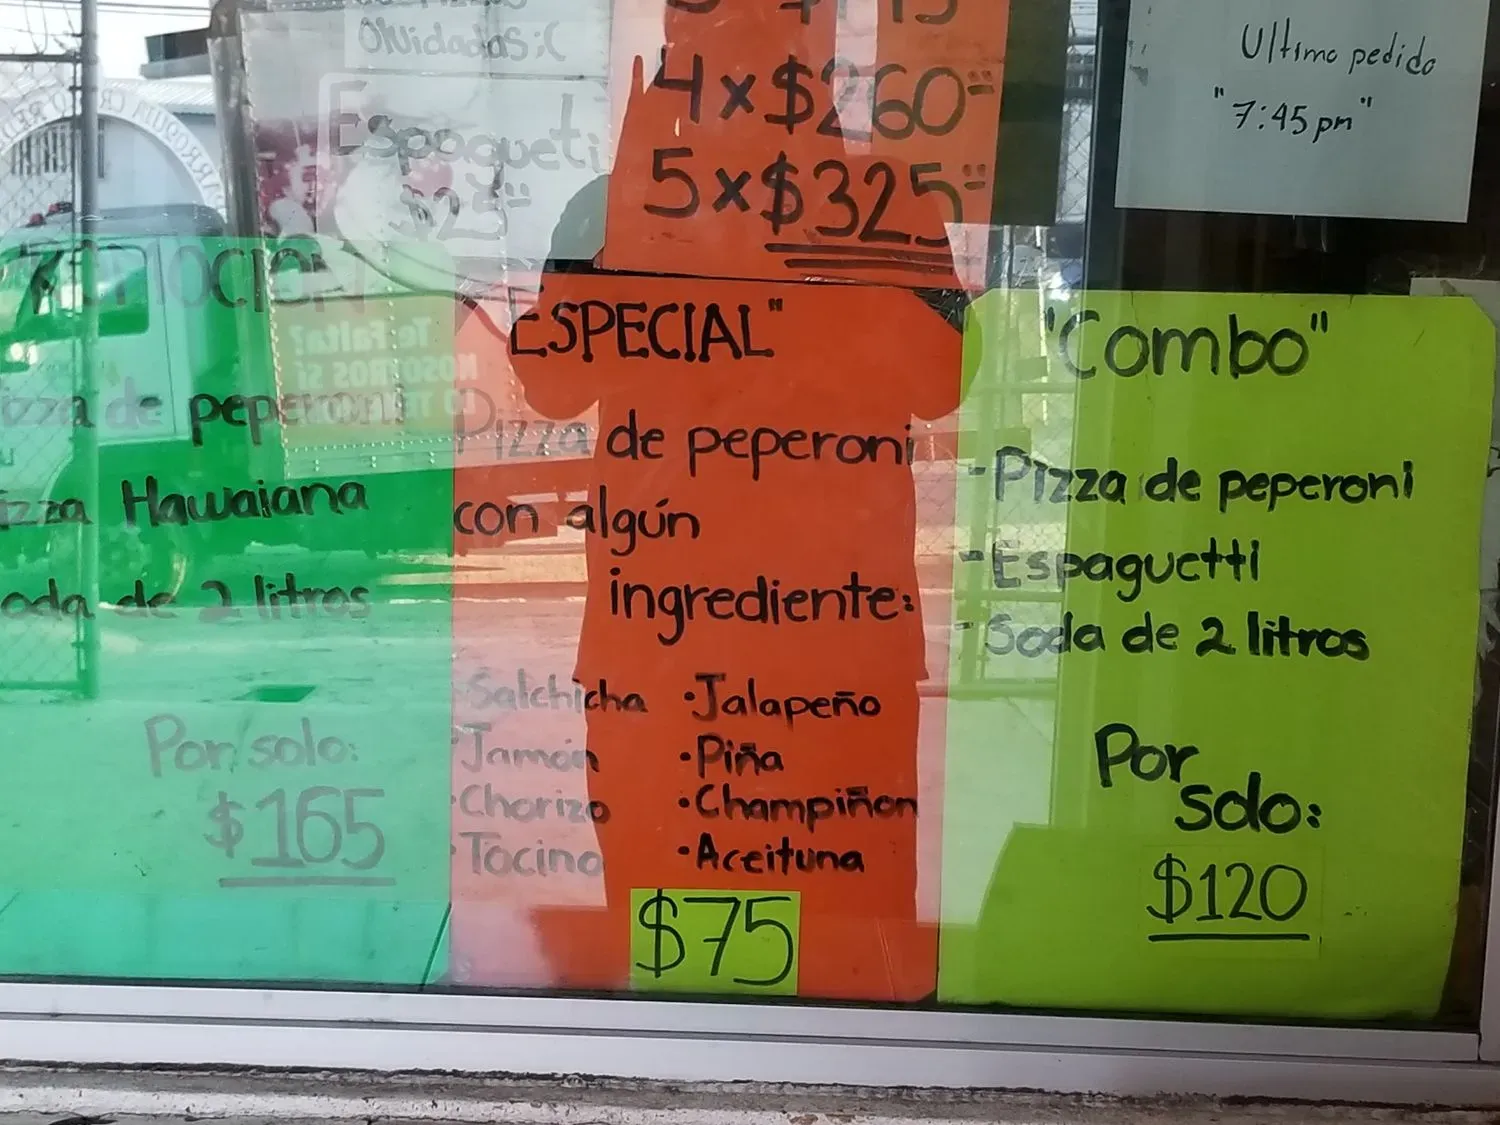 Olvidadas :(
Espagueti
$25
3 x $195
4 x $260
5 x $325
Ultimo pedido
"7:45 pm"
PROMOCION
Pizza de peperoni
Pizza Hawaiana
Soda de 2 litros
Por solo:
$165
Te Falta?
NOSOTROS SÍ
LO TENEMOS
"ESPECIAL"
Pizza de peperoni
con algún
ingrediente:
Salchicha
Jamón
Chorizo
Tocino
• Jalapeño
• Piña
• Champiñon
• Aceituna
$75
"Combo"
- Pizza de peperoni
- Espaguetti
- Soda de 2 litros
Por
solo:
$120